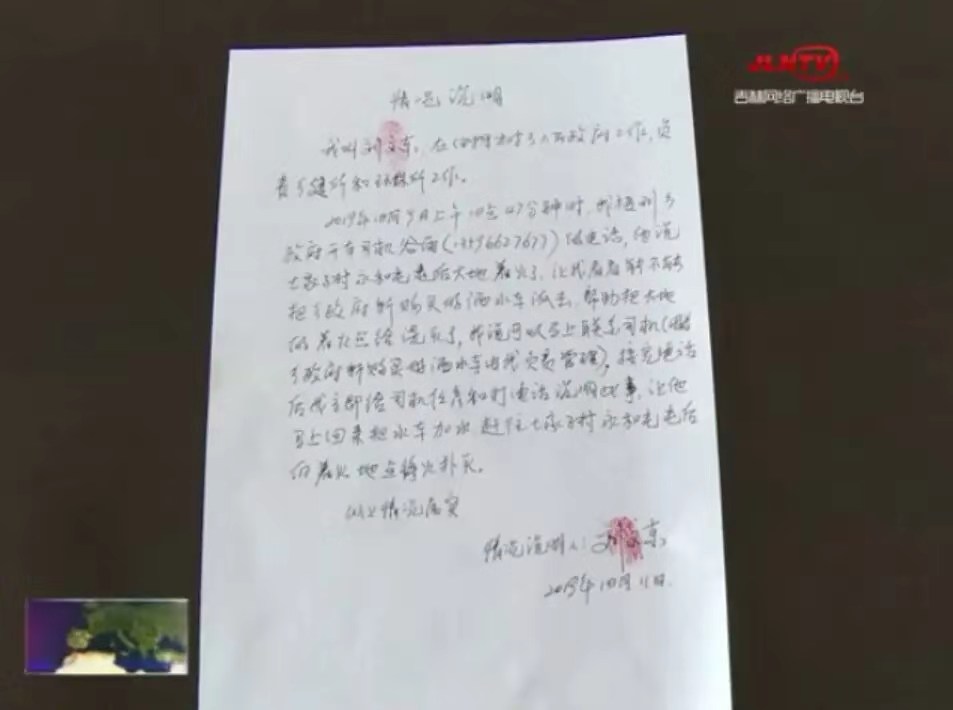 JLNTV
吉林网络广播电视台
情况说明
我叫刘文东,在 乡人民政府工作,负
责乡建所和环保所工作。
2019年10月9日上午10点47分钟时,我接到乡
政府干部司机 电话,他说
土 子村永和屯屯后大地着火了,让我看看能不能
把乡政府新购买的洒水车派去,帮助把大地
的着火点给浇灭了,我说可以马上联系司机(因
乡政府新购买的洒水车由我负责管理)。接完电话
后我立即给司机任 打电话说明此事,让他
马上回来把水车加水赶往土 子村永和屯屯后
的着火地点将火扑灭。
以上情况属实
情况说明人:刘文东
2019年10月11日.